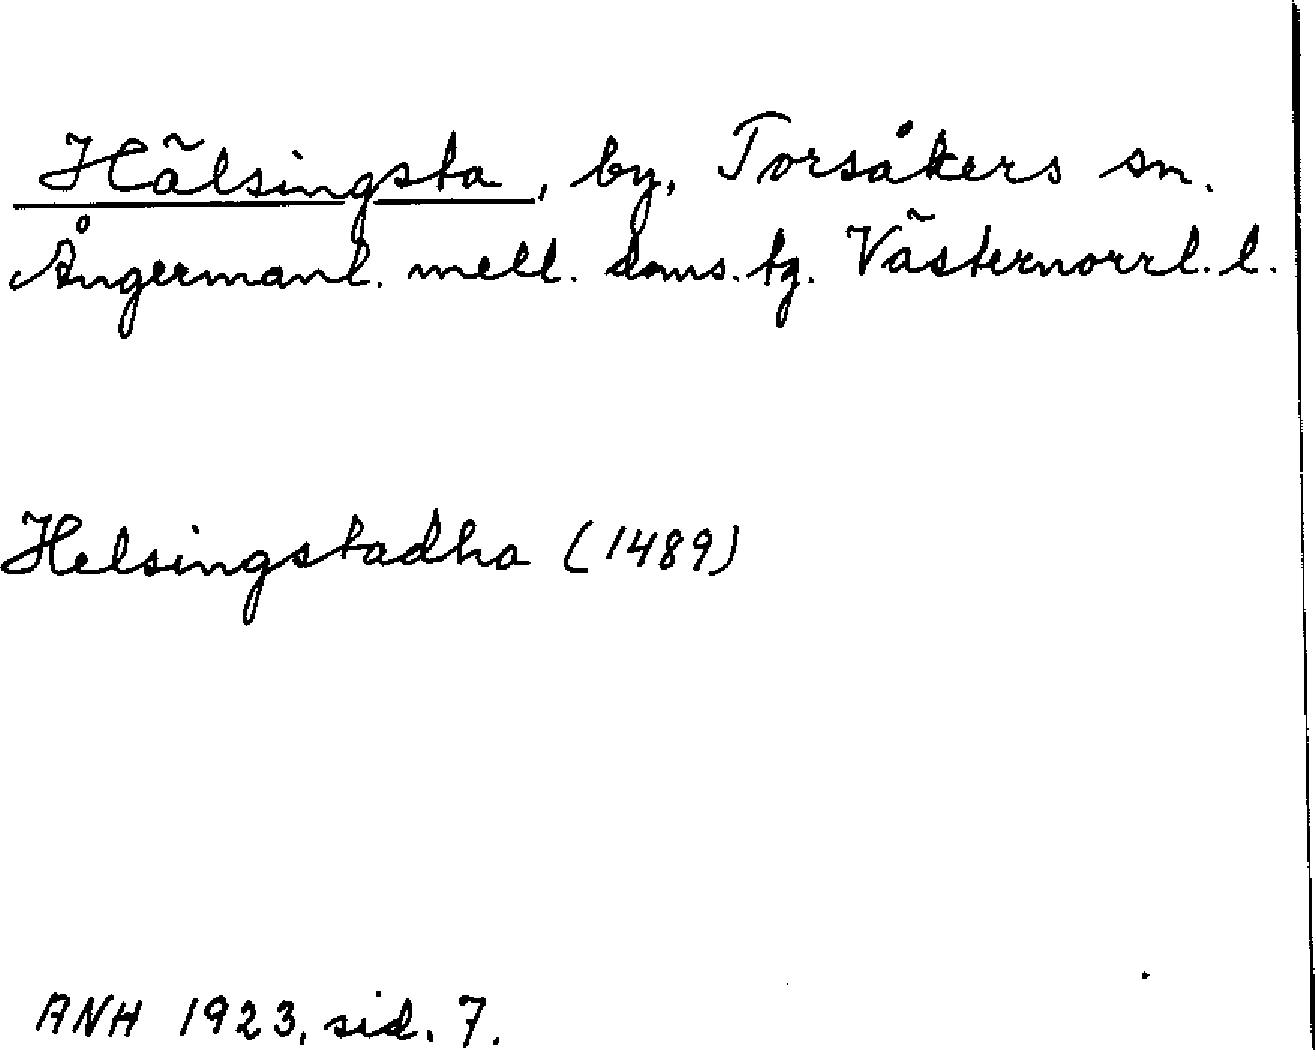 Hälsingsta, by, Torsåkers sn.
Ångermanl. mell. doms. tg. Västernorrl. l.
Helsingstadha (1489)
ANH 1923, sid. 7.